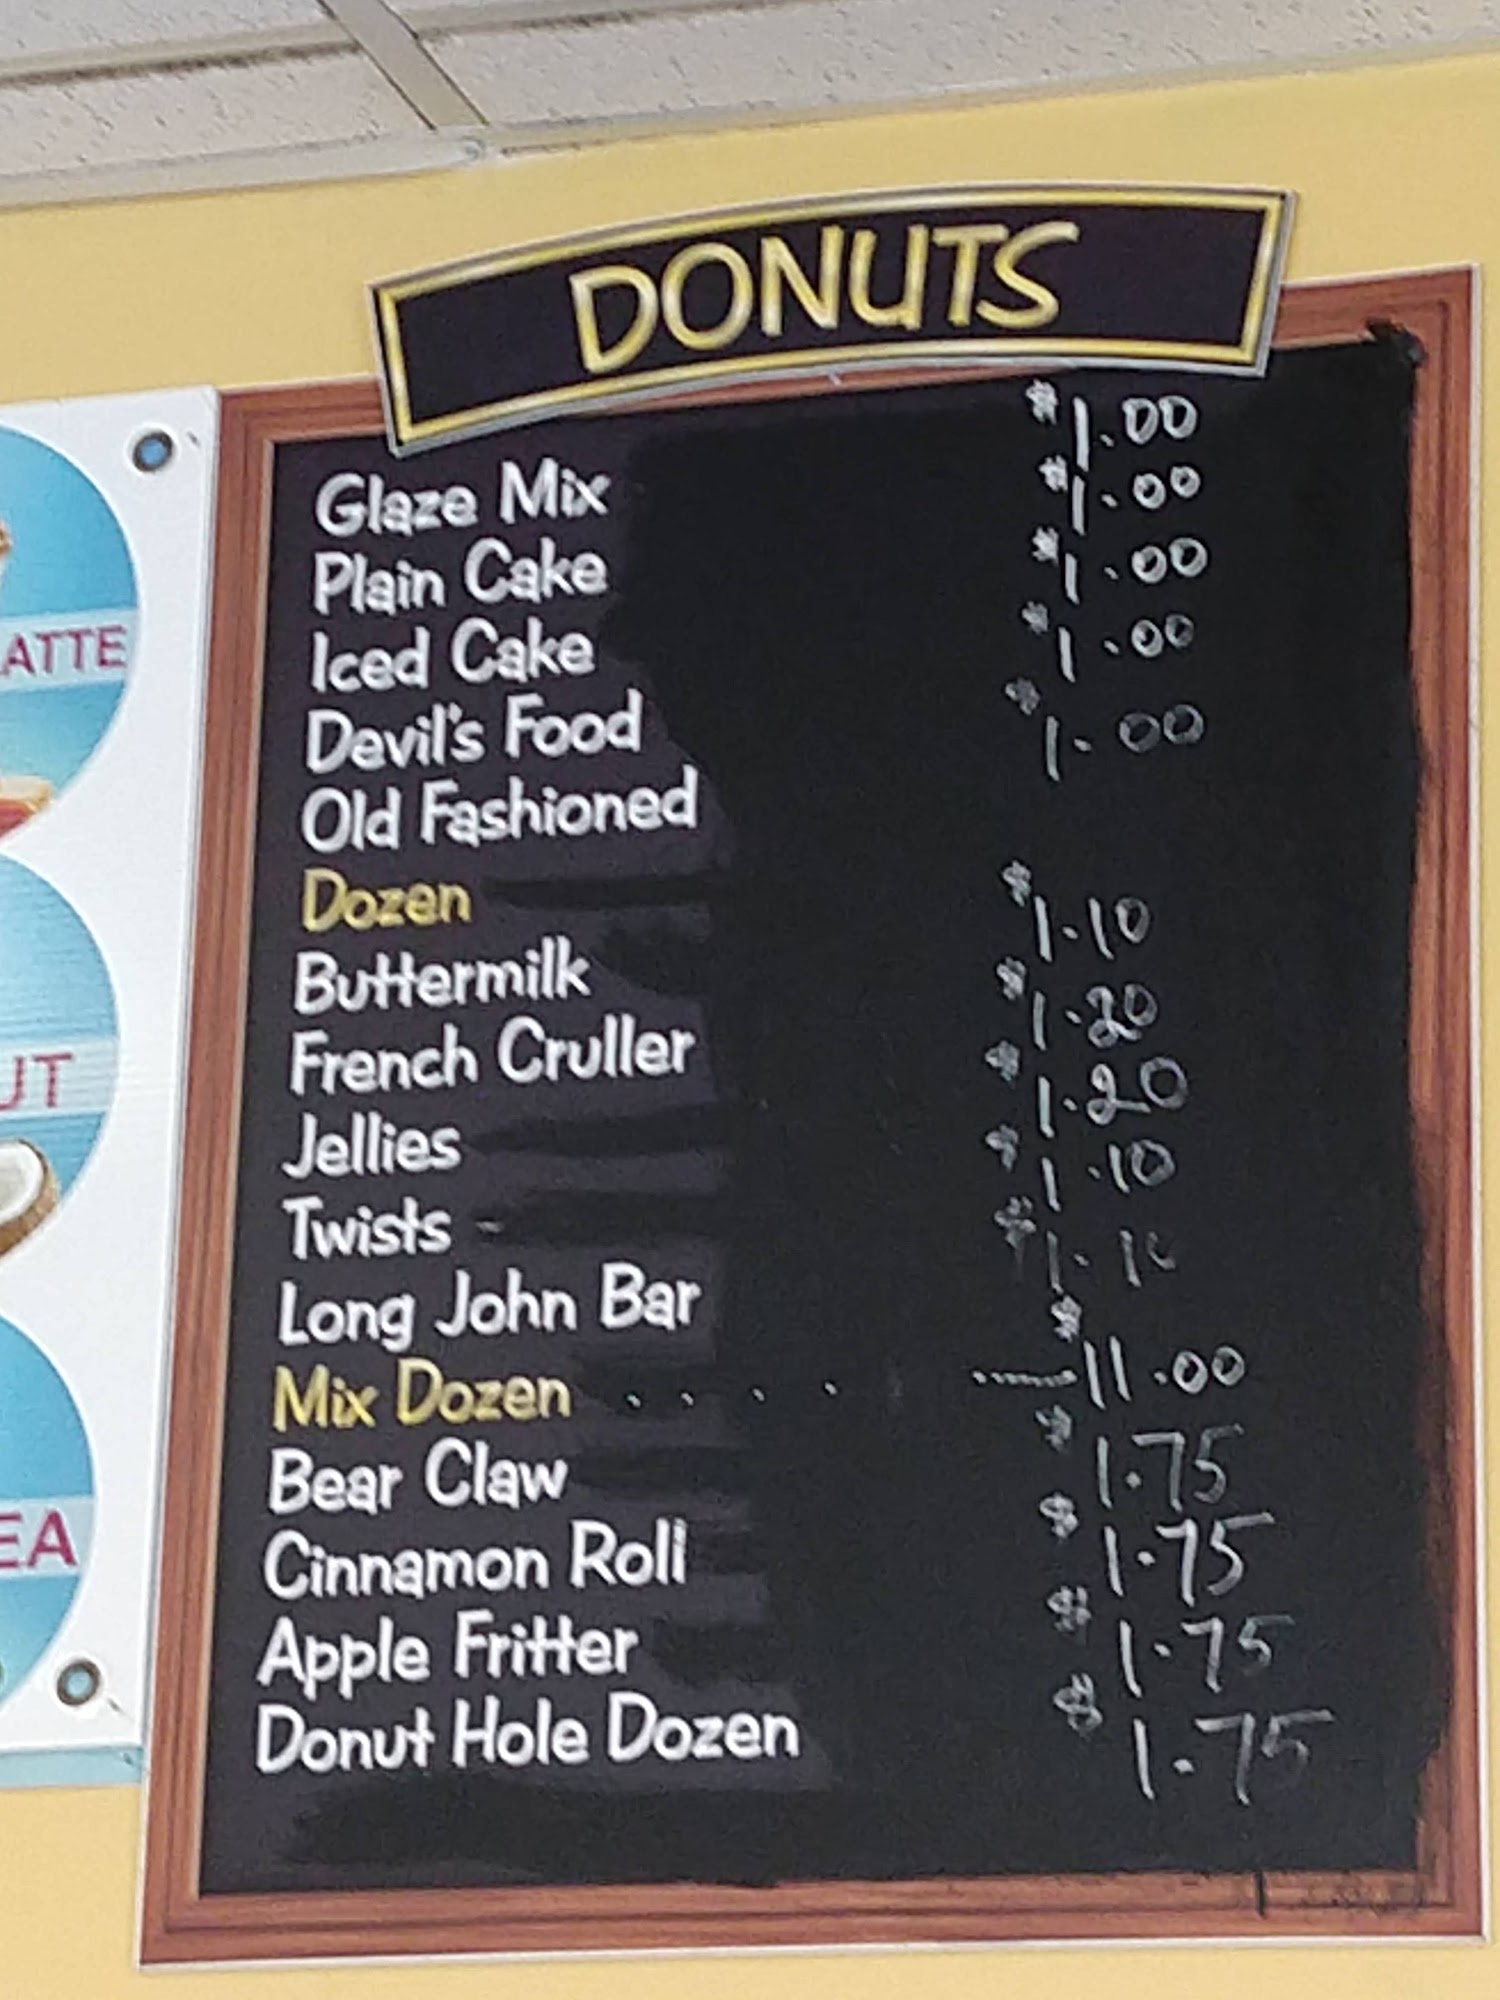 DONUTS
Glaze Mix $1.00
Plain Cake $1.00
Iced Cake $1.00
Devil's Food $1.00
Old Fashioned $1.00
Dozen
Buttermilk $1.10
French Cruller $1.20
Jellies $1.20
Twists $1.10
Long John Bar $1.10
Mix Dozen . . . . ........ $11.00
Bear Claw $1.75
Cinnamon Roll $1.75
Apple Fritter $1.75
Donut Hole Dozen $1.75
ATTE
UT
EA